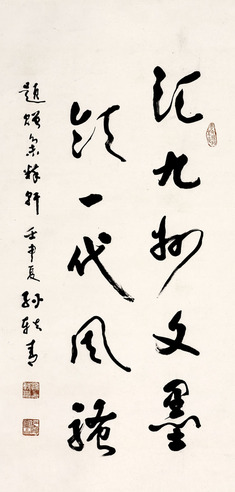 汇九州文墨
领一代风骚
题赠集粹轩 壬申夏 孙轶青